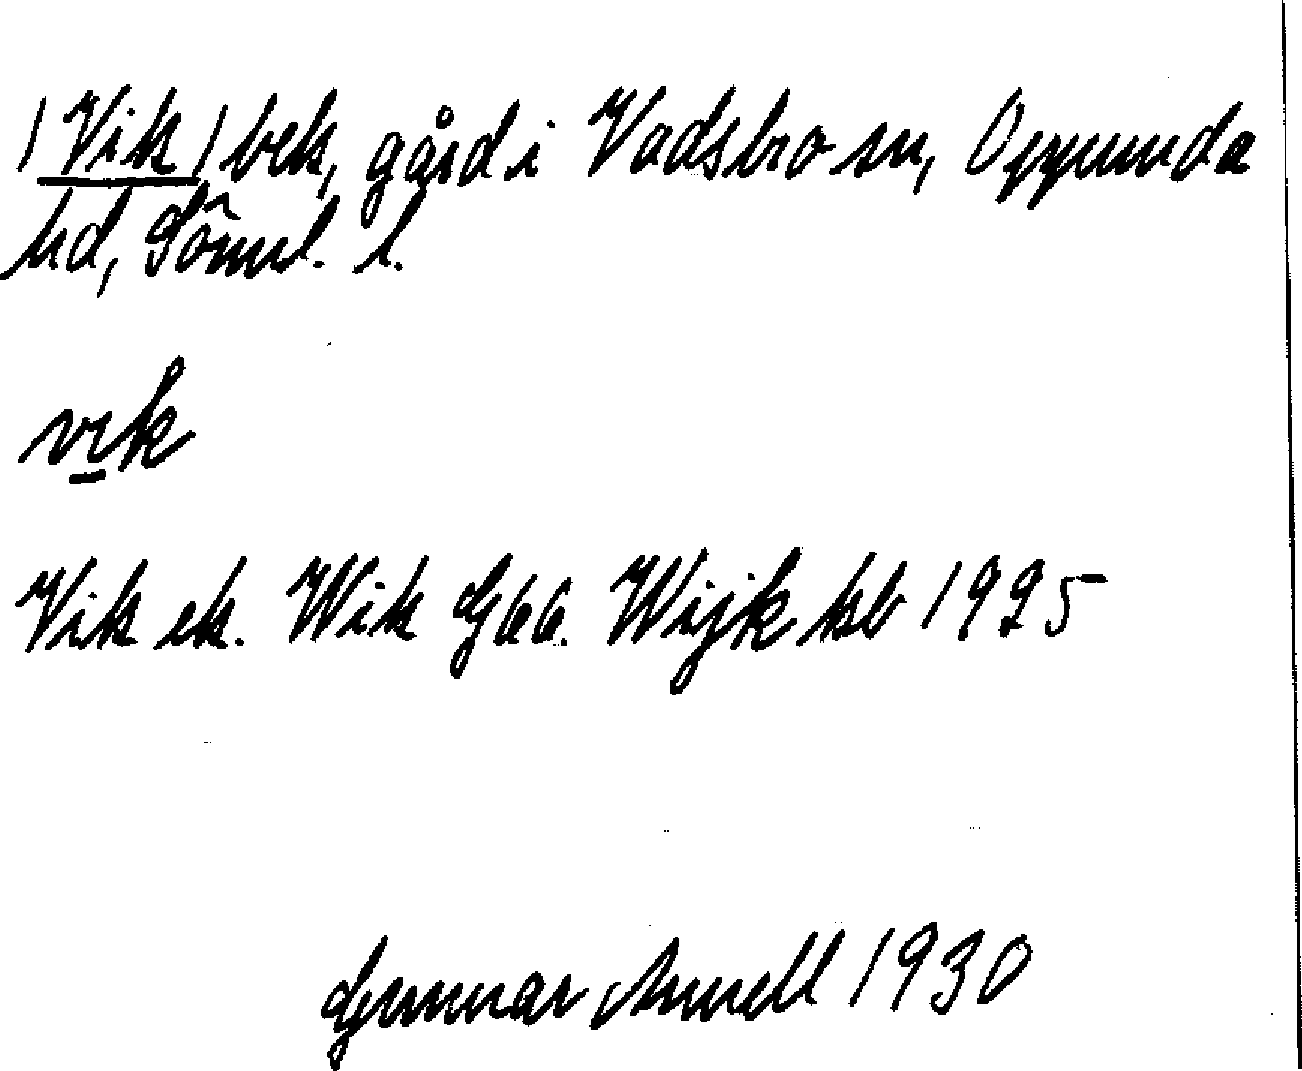 /Vik/ bek, gård i Vadsbro sn, Oppunda
hd, Söml. l.
vik
Vik ek. Wik G66. Wijk kb 1925
Gunnar Arnell 1930